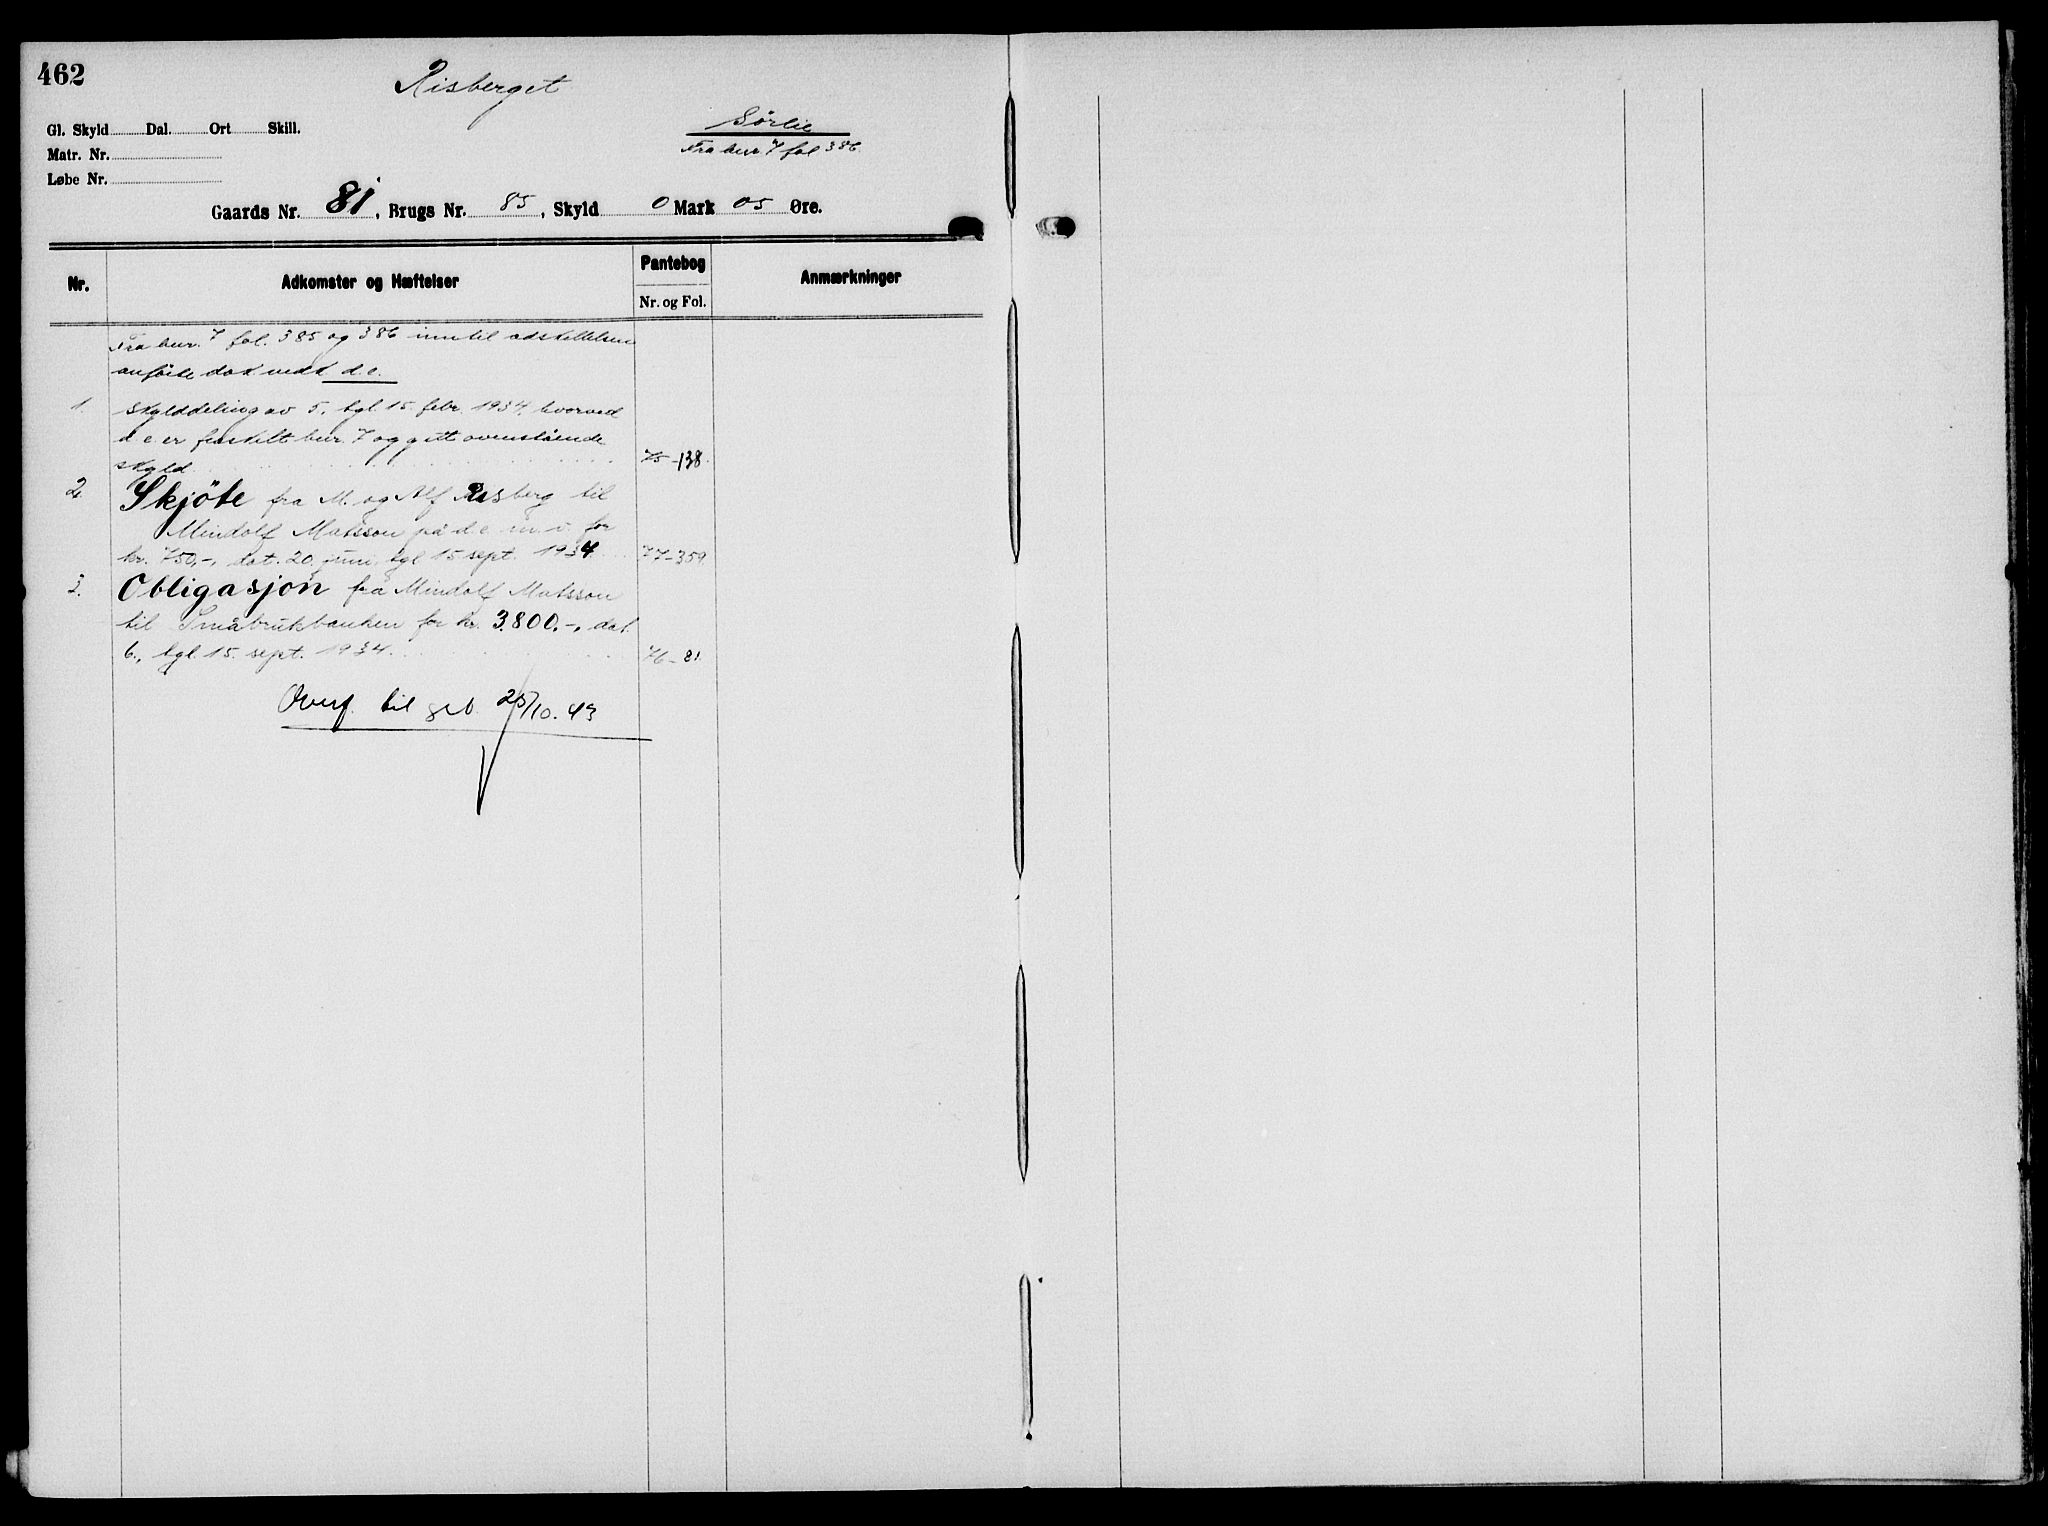 462
Risberget
Sørlie
Gl. Skyld Dal. Ort Skill.
Fra bnr 7 fol 386.
Matr. Nr.
Løbe Nr.
Gaards Nr. 81, Brugs Nr. 85, Skyld 0 Mark 05 Øre.
Nr. Adkomster og Hæftelser Pantebog Anmærkninger
Nr. og Fol.
Fra bnr. 7 fol. 385 og 386 inntil adskillelsen
anførte dok. vedk d. e.
1. Skylddeling av 5, tgl. 15. febr. 1934, hvorved
d e er fraskilt bnr. 7 og gitt ovenstående
skyld 75-138.
2. Skjöte fra M. og Alf Risberg til
Mindolf Matsson på d. e. m. v. for
kr. 750,-, dat. 20. juni, tgl 15 sept. 1934. 77-359
3. Obligasjon fra Mindolf Matsson
til Småbrukbanken for kr. 3.800,-, dat.
6., tgl. 15. sept. 1934. 76-81.
Overf. til 25/10. 43